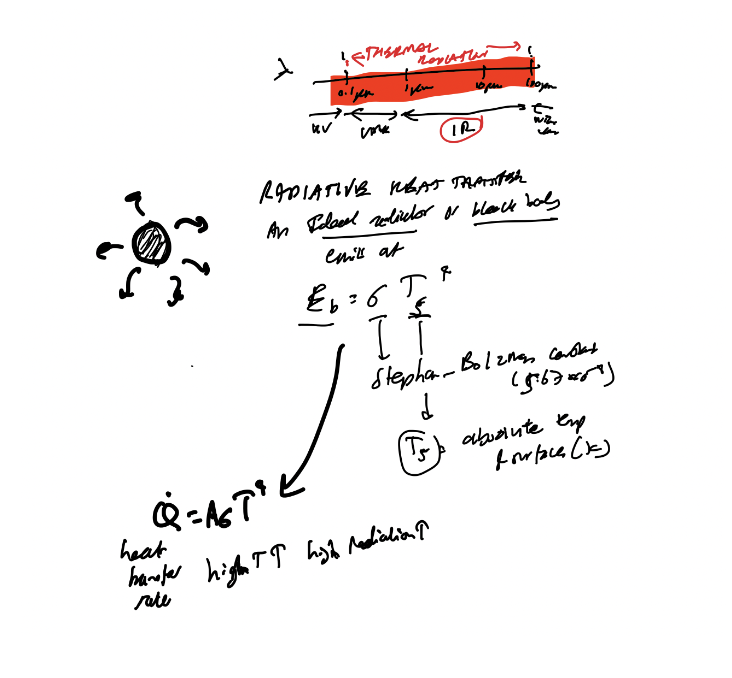 ← THERMAL RADIATION →
λ
0.1μm 1μm 10μm 100μm
UV IR
RADIATIVE HEAT TRANSFER
An Ideal radiator or black body
emits at
E_b = σ T_s^4
Stephan - Bolzman constant
T_s: absolute temp
of surface (K)
Q̇ = AσT^4
heat
transfer
rate
high T↑ high Radiation↑